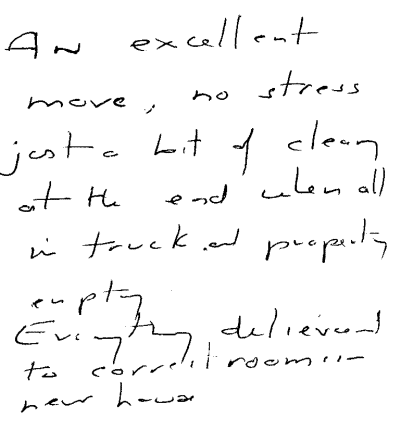 An excellent
move, no stress
just a bit of clean
at the end when all
in truck and property
empty
Everything delievered
to correct room in
new house